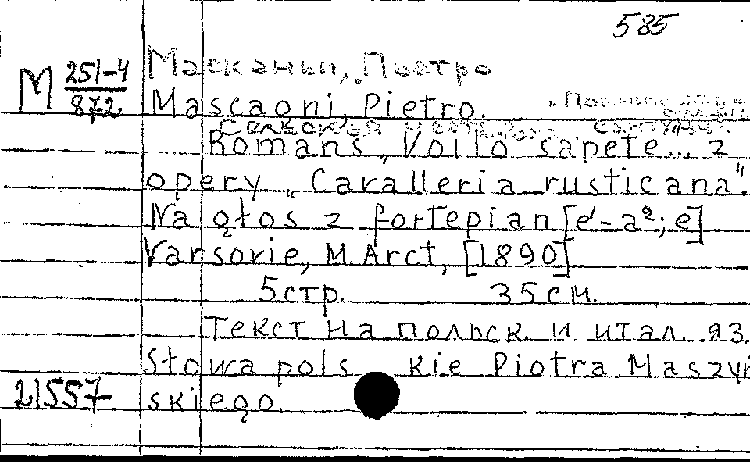 585
М 251-4
872
Масканьи, Пьетро
Mascagni, Pietro.
Сельская
Romans „Voi lo sapete... z
opery „Cavalleria rusticana".
Na głos z fortepian [e'-a²; e]
Varsovie, M. Arct, [1890]
5 стр. 35 см.
Текст на польск. и итал. яз.
Słowa polskie Piotra Maszyń
21557
skiego.